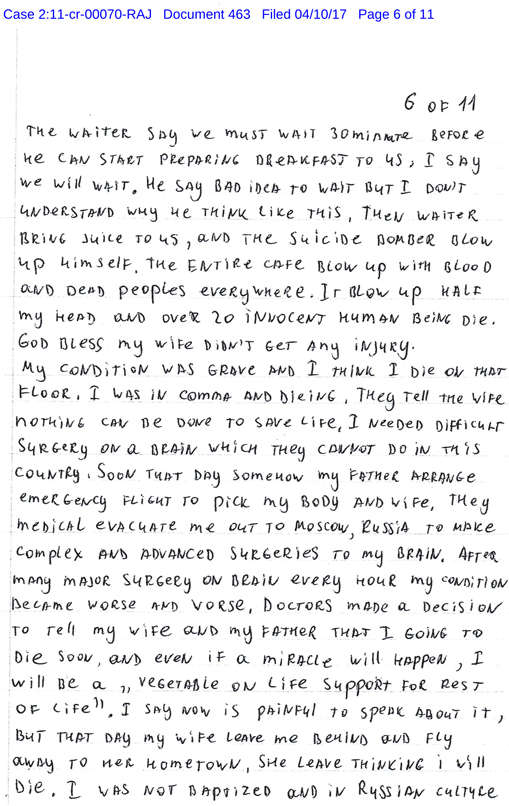 Case 2:11-cr-00070-RAJ Document 463 Filed 04/10/17 Page 6 of 11
6 OF 11
THE WAITER SAY WE MUST WAIT 30 minnute BEFORE
HE CAN START PREPARING BREAKFAST TO US, I SAY
WE WILL WAIT. HE SAY BAD IDEA TO WAIT BUT I DON'T
UNDERSTAND WHY HE THINK LIKE THIS, THEN WAITER
BRING JUICE TO US, AND THE SUICIDE BOMBER BLOW
UP HIMSELF. THE ENTIRE CAFE BLOW UP WITH BLOOD
AND DEAD PEOPLES EVERYWHERE. IT BLOW UP HALF
MY HEAD AND OVER 20 INNOCENT HUMAN BEING DIE.
GOD BLESS MY WIFE DIDN'T GET ANY INJURY.
MY CONDITION WAS GRAVE AND I THINK I DIE ON THAT
FLOOR. I WAS IN COMMA AND DIEING, THEY TELL THE WIFE
NOTHING CAN BE DONE TO SAVE LIFE, I NEEDED DIFFICULT
SURGERY ON A BRAIN WHICH THEY CANNOT DO IN THIS
COUNTRY. SOON THAT DAY SOMEHOW MY FATHER ARRANGE
EMERGENCY FLIGHT TO PICK MY BODY AND WIFE, THEY
MEDICAL EVACUATE ME OUT TO MOSCOW, RUSSIA TO MAKE
COMPLEX AND ADVANCED SURGERIES TO MY BRAIN. AFTER
MANY MAJOR SURGERY ON BRAIN EVERY HOUR MY CONDITION
BECAME WORSE AND VORSE, DOCTORS MADE A DECISION
TO TELL MY WIFE AND MY FATHER THAT I GOING TO
DIE SOON, AND EVEN IF A MIRACLE WILL HAPPEN, I
WILL BE A „VEGETABLE ON LIFE SUPPORT FOR REST
OF LIFE". I SAY NOW IS PAINFUL TO SPEAK ABOUT IT,
BUT THAT DAY MY WIFE LEAVE ME BEHIND AND FLY
AWAY TO HER HOMETOWN, SHE LEAVE THINKING I WILL
DIE. I WAS NOT BAPTIZED AND IN RUSSIAN CULTURE